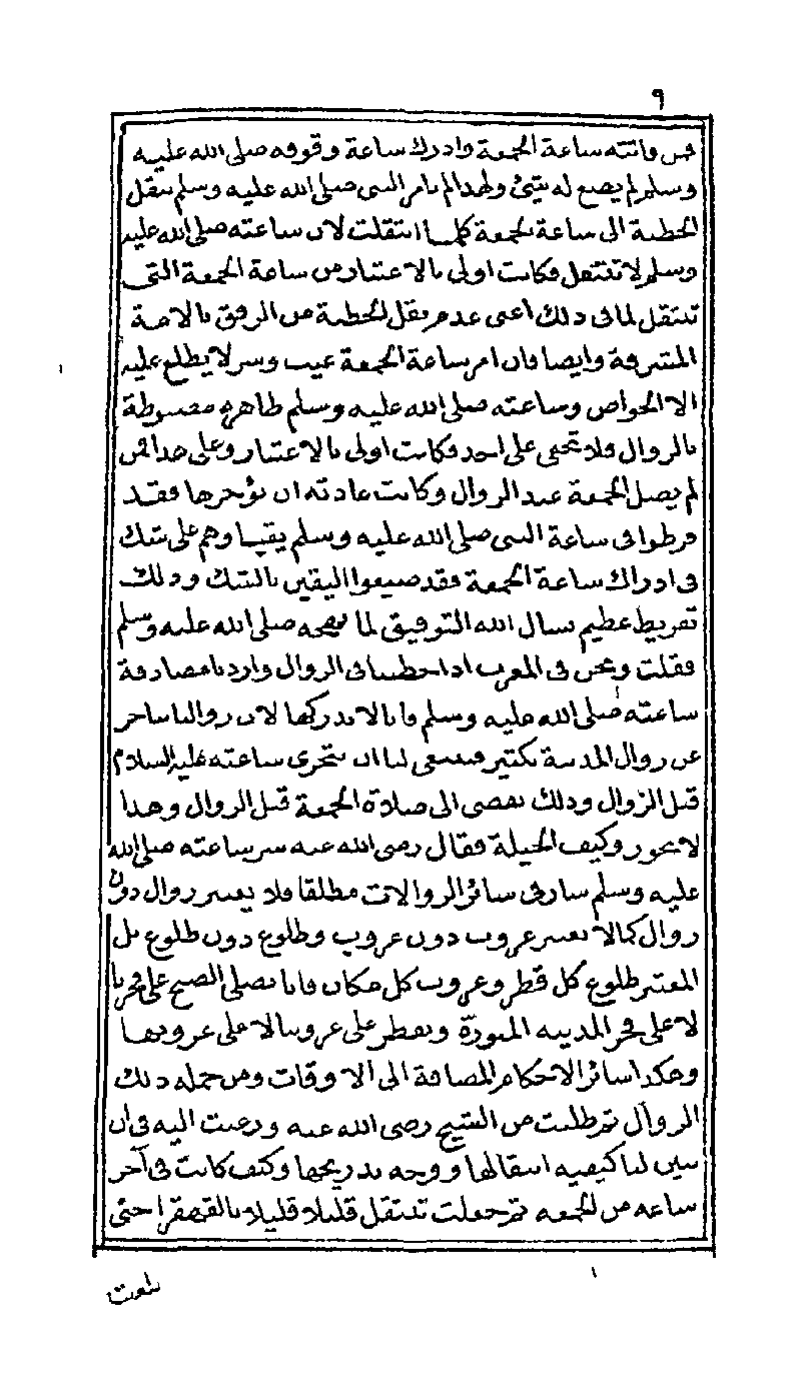 ٩
فمن فاتته ساعة الجمعة وادرك ساعة وقوفه صلى الله عليه
وسلم لم يضع له شئ ولهذا لم يامر النبى صلى الله عليه وسلم بنقل
الخطبة الى ساعة الجمعة كلما انتقلت لان ساعته صلى الله عليه
وسلم لا تنتقل فكانت اولى بالاعتبار من ساعة الجمعة التى
تنتقل لما فى ذلك اعنى عدم نقل الخطبة من الرفق بالامة
المشرفة وايضا فان امر ساعة الجمعة غيب وسر لا يطلع عليه
الا الخواص وساعته صلى الله عليه وسلم ظاهرة مضبوطة
بالزوال فلا تخفى على احد فكانت اولى بالاعتبار وعلى هذا فمن
لم يصل الجمعة عند الزوال وكانت عادته ان يؤخرها فقد
فرطوا فى ساعة النبى صلى الله عليه وسلم يقينا وهم على شك
فى ادراك ساعة الجمعة فقد ضيعوا اليقين بالشك وذلك
تفريط عظيم نسال الله التوفيق لما نهجه صلى الله عليه وسلم
فقلت ونحن فى المغرب اذا خطبنا فى الزوال واردنا مصادفة
ساعته صلى الله عليه وسلم فانا لا ندركها لان زوالنا يتاخر
عن زوال المدينة بكثير فينبغى لنا ان نتحرى ساعته عليه السلام
قبل الزوال وذلك يفضى الى صلاة الجمعة قبل الزوال وهذا
لا يجوز وكيف الحيلة فقال رضى الله عنه سر ساعته صلى الله
عليه وسلم سار فى سائر الزوالات مطلقا فلا يعتبر زوال دون
زوال كما لا يعتبر غروب دون غروب وطلوع دون طلوع بل
المعتبر طلوع كل قطر وغروب كل مكان فانا نصلى الصبح على فجرنا
لا على فجر المدينه المنورة ونفطر على غروبنا لا على غروبها
وهكذا سائر الاحكام المضافة الى الاوقات ومن جمله ذلك
الزوال ثم طلبت من الشيخ رضى الله عنه ورغبت اليه فى ان
يبين لنا كيفيه انتقالها ووجه تدريجها وكيف كانت فى آخر
ساعه من الجمعه ثم جعلت تنتقل قليلا قليلا بالقهقرا حتى
بلغت